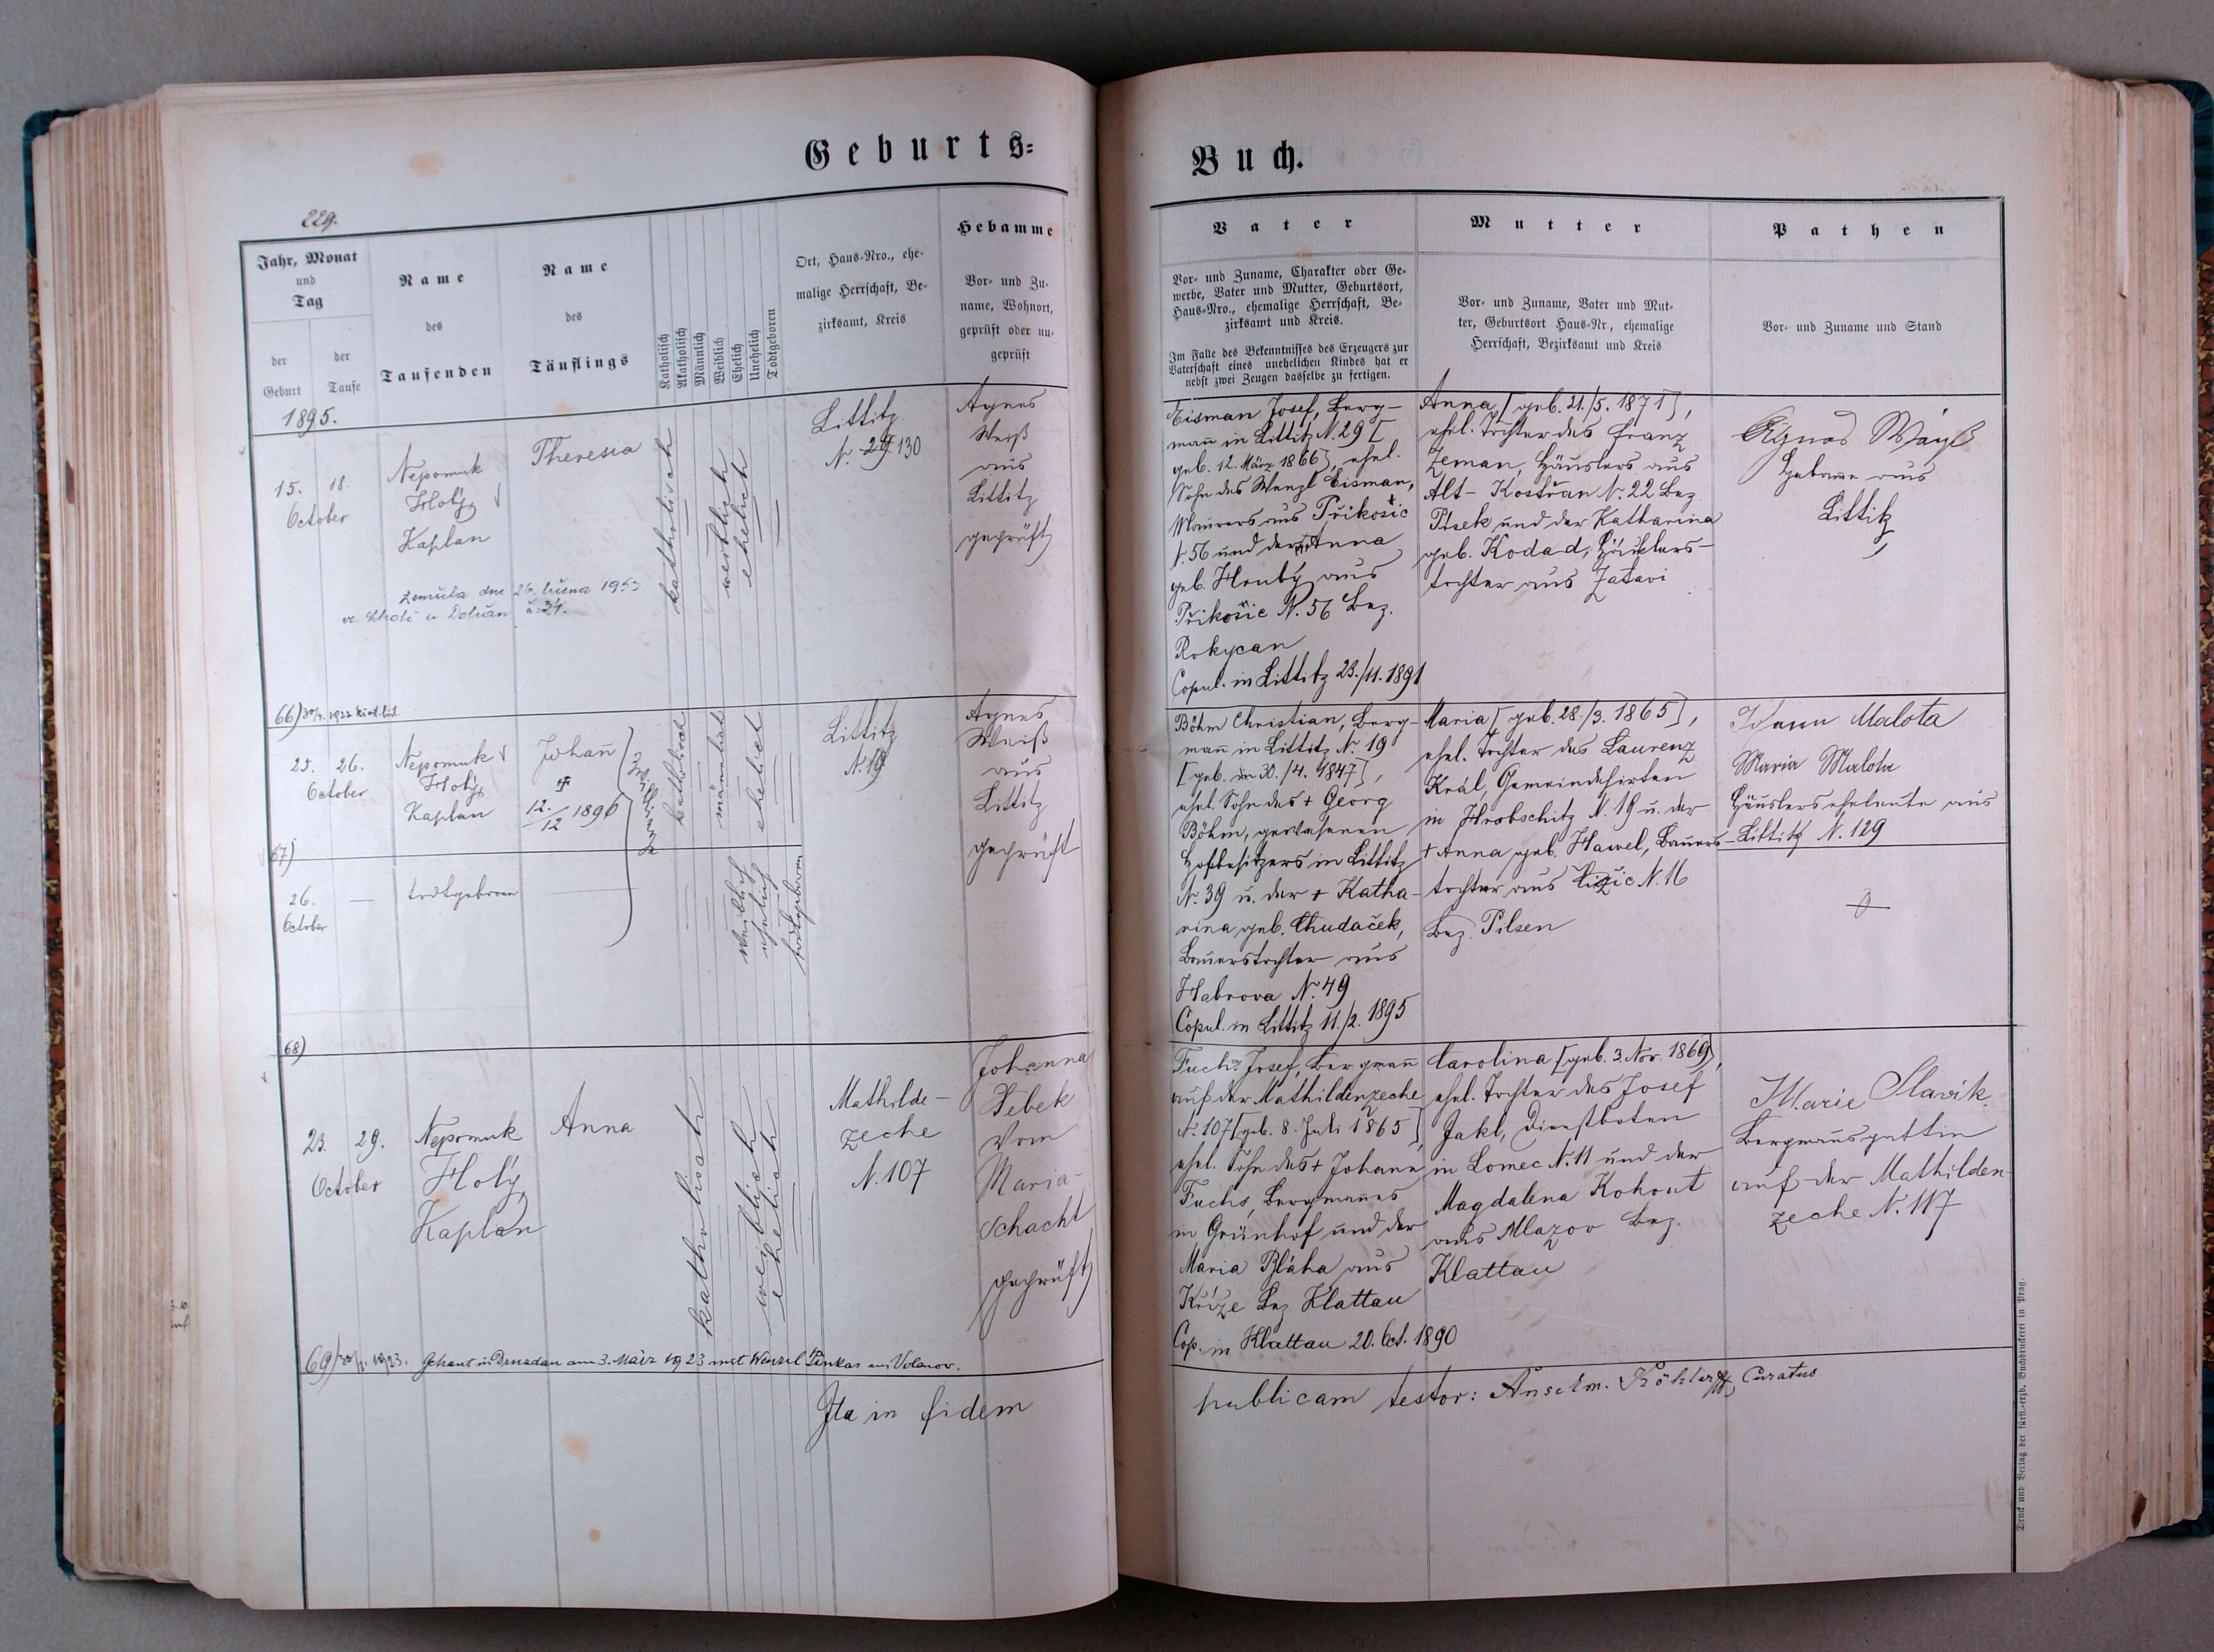 Geburts=
Buch.
229.
Jahr, Monat
und
Tag
der
Geburt
der
Taufe
Name
des
Taufenden
Name
des
Täuflings
Katholisch
Akatholisch
Männlich
Weiblich
Ehelich
Unehelich
Todtgeboren
Ort, Haus-Nro., ehe-
malige Herrschaft, Be-
zirksamt, Kreis
Hebamme
Vor- und Zu-
name, Wohnort,
geprüft oder un-
geprüft
Vater
Vor- und Zuname, Charakter oder Ge-
werbe, Vater und Mutter, Geburtsort,
Haus-Nro., ehemalige Herrschaft, Be-
zirksamt und Kreis.
Im Falle des Bekenntnisses des Erzeugers zur
Vaterschaft eines unehelichen Kindes hat er
nebst zwei Zeugen dasselbe zu fertigen.
Mutter
Vor- und Zuname, Vater und Mut-
ter, Geburtsort Haus-Nr., ehemalige
Herrschaft, Bezirksamt und Kreis
Pathen
Vor- und Zuname und Stand
1895.
15. 18.
October
Nepomuk
Holý
Kaplan
Theresia
katholisch
weiblich
ehelich
Littitz
N. 29 130
Agnes
Weiß
aus
Littitz
geprüft
zemřela dne 26. 1953
ve Lhotě u Dobřan č. 31.
Eisman Josef, Berg-
mann in Littitz N. 29 [
geb. 12. März 1866], ehel.
Sohn des Wenzl Eisman,
Maurers aus Přikosic
N. 56 und der Anna
geb. Hrubý aus
Přikosic N. 56 Bez.
Rokycan
Copul. in Littitz 23./11. 1891
Anna, [geb. 21./5. 1871],
ehel. Tochter des Franz
Zeman, Häuslers aus
Alt-Kostřan N. 22 Bez.
Pisek und der Katharina
geb. Kodad, Häuslers-
tochter aus Zátavi
Agnes Weiß
Hebamme aus
Littitz
66)
25. 26.
October
Nepomuk
Holý
Kaplan
Johann
12./12 1896
Zwillinge
katholisch
männlich
ehelich
Littitz
N. 19
Agnes
Weiß
aus
Littitz
geprüft
Böhm Christian, Berg-
mann in Littitz N. 19
[geb. am 30./4. 1847],
ehel. Sohn des + Georg
Böhm, gewesenen
Hofbesitzers in Littitz
N. 39 u. der + Katha-
rina geb. Chudaček,
Bauerstochter aus
Habrova N. 49
Copul. in Littitz 11./2. 1895
Maria [geb. 28./3. 1865],
ehel. Tochter des Laurenz
Král, Gemeindehirten
in Hrobschitz N. 19 u. der
+ Anna geb. Hawel, Bauers-
tochter aus N. 16
Bez. Pilsen
Johann Malota
Maria Malota
Häuslerseheleute aus
Littitz N. 129
67)
26.
October
—
todtgeboren
weiblich
ehelich
todtgeboren
68)
23. 29.
October
Nepomuk
Holý
Kaplan
Anna
katholisch
weiblich
ehelich
Mathilde-
zeche
N. 107
Johanna
Žebek
vom
Maria-
Schacht
geprüft
Fuchs Josef, Bergmann
auf der Mathildenzeche
N. 107 [geb. 8. Juli 1865]
ehel. Sohn des + Johann
Fuchs, Bergmannes
in Grünhof und der
Maria Bláha aus
Kříže Bez. Klattau
Cop. in Klattau 20. Oct. 1890
Carolina [geb. 3. Nov. 1869],
ehel. Tochter des Josef
Jakl, Dienstboten
in Lomec N. 11 und der
Magdalena Kohout
aus Mlazov Bez.
Klattau
Marie Slavik
Bergmannsgattin
auf der Mathilden-
zeche N. 117
69) Getraut in am 3. März 1923 mit Wenzel Pinkas aus Volanov.
Ita in fidem
publicam testor: Anselm. Köhler, Curatus
Druck und Verlag der fürst.-erzb. Buchdruckerei in Prag.